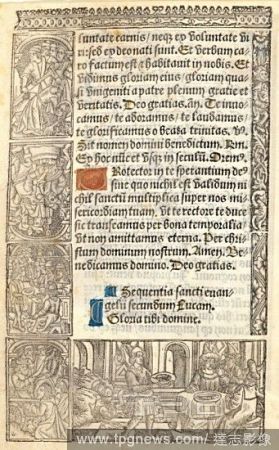 luntate carnis/ neq̃ ex voluntate vi
ri: sed ex deo nati sunt. Et verbum ca
ro factum est & habitavit in nobis. Et
vidimus gloriam eius/ gloriam qua
si vnigeniti a patre plenum gratie et
veritatis. Deo gratias. añ. Te invo
camus/ te adoramus/ te laudamus
te glorificamus o beata trinitas. v̄.
Sit nomen domini benedictum. Rm̄.
Ex hoc nũc et vsq̃ in seculũ. Orem⁹.
Protector in te sperantium de⁹
sine quo nichil est validum ni
chil sanctũ multiplica super nos mi
sericordiam tuam/ vt te rectore te duc
sic transeamus per bona temporalia
vt non amittamus eterna. Per chri
stum dominum nostrum. Amen. Be
nedicamus domino. Deo gratias.
Sequentia sancti euan-
gelii secundum Lucam.
Gloria tibi domine.
www.tpgnews.com/ 達志影像